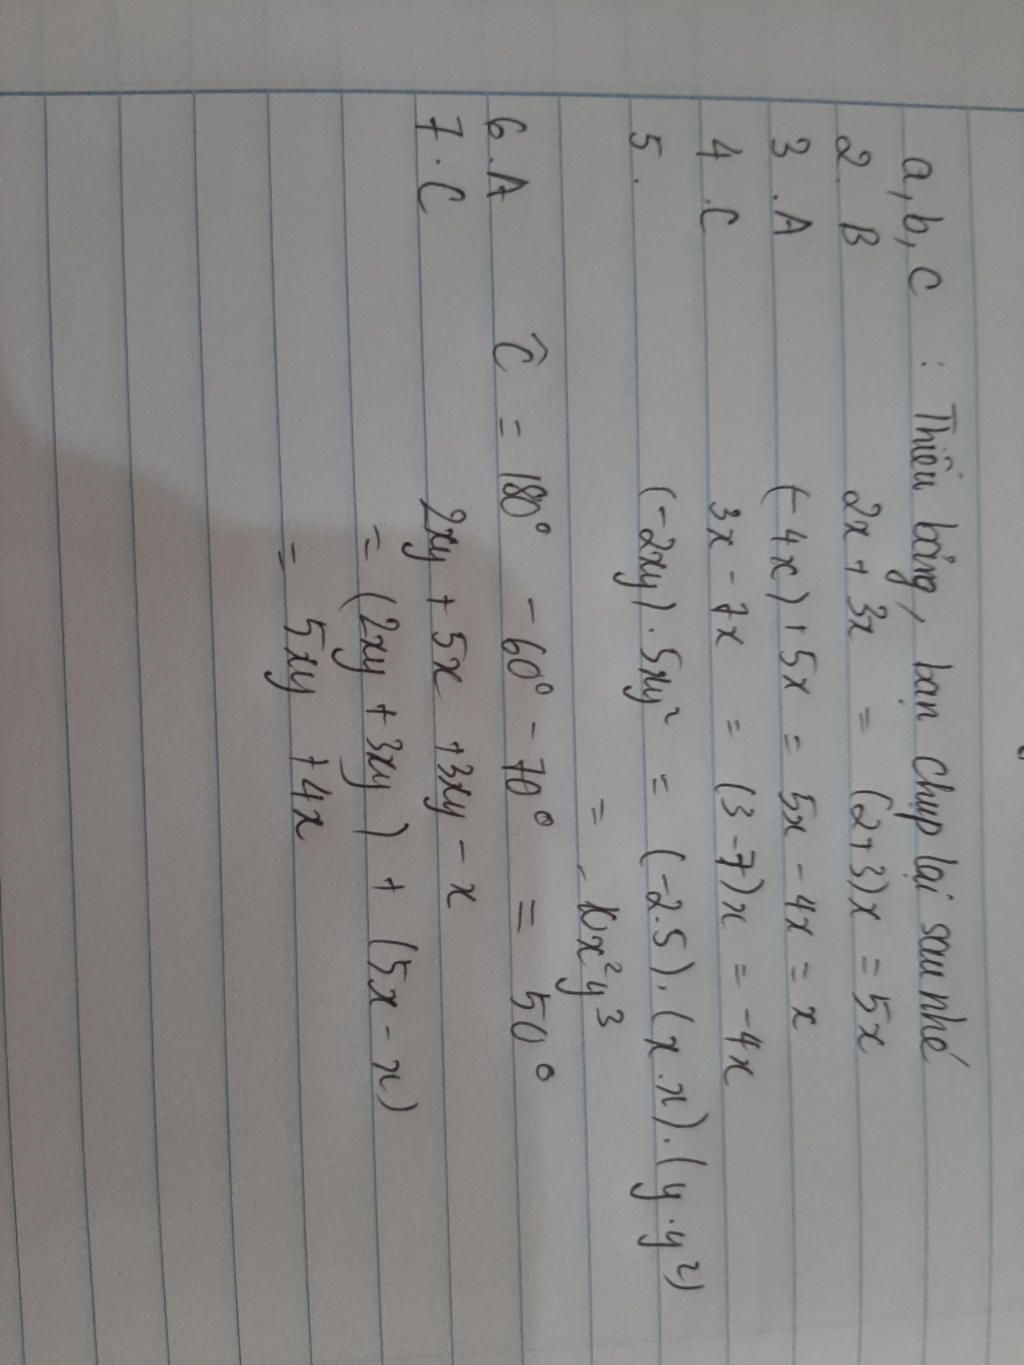 a, b, c : Thiếu bảng, bạn chụp lại sau nhé
2. B 2x + 3x = (2+3)x = 5x
3. A (-4x) + 5x = 5x - 4x = x
4. C 3x - 7x = (3-7)x = -4x
5. (-2xy).5xy² = (-2.5).(x.x).(y.y²)
= -10x²y³
6. A Ĉ = 180° - 60° - 70° = 50°
7. C 2xy + 5x + 3xy - x
= (2xy + 3xy) + (5x - x)
= 5xy + 4x